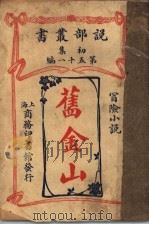 說部叢書
初集
第五十一編
冒險小說
舊金山
上海商務印書館發行